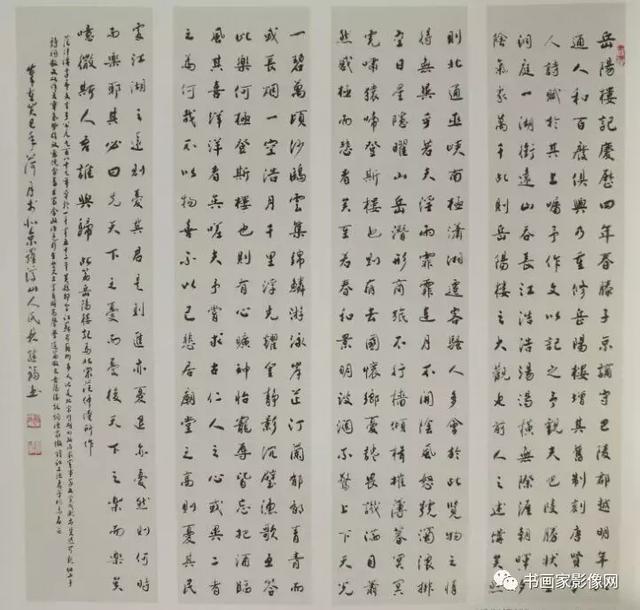 岳陽樓記慶曆四年春滕子京謫守巴陵郡越明年政
通人和百廢俱興乃重修岳陽樓增其舊制刻唐賢今
人詩賦於其上囑予作文以記之予觀夫巴陵勝狀在
洞庭一湖銜遠山吞長江浩浩湯湯橫無際涯朝暉夕
陰氣象萬千此則岳陽樓之大觀也前人之述備矣然
則北通巫峽南極瀟湘遷客騷人多會於此覽物之情
得無異乎若夫淫雨霏霏連月不開陰風怒號濁浪排
空日星隱曜山岳潛形商旅不行檣傾楫摧薄暮冥冥
虎嘯猿啼登斯樓也則有去國懷鄉憂讒畏譏滿目蕭
然感極而悲者矣至若春和景明波瀾不驚上下天光
一碧萬頃沙鷗雲集錦鱗游泳岸芷汀蘭郁郁青青而
或長煙一空浩月千里浮光耀金靜影沉璧漁歌互答
此樂何極登斯樓也則有心曠神怡寵辱皆忘把酒臨
風其喜洋洋者矣嗟夫予嘗求古仁人之心或異二者
之為何哉不以物喜不以己悲居廟堂之高則憂其民
處江湖之遠則憂其君是則進亦憂退亦憂然則何時
而樂耶其必曰先天下之憂而憂後天下之樂而樂矣
噫微斯人吾誰與歸 此為岳陽樓記為北宋范仲淹所作
癸巳年荷月書 羅浮山人
书画家影像网